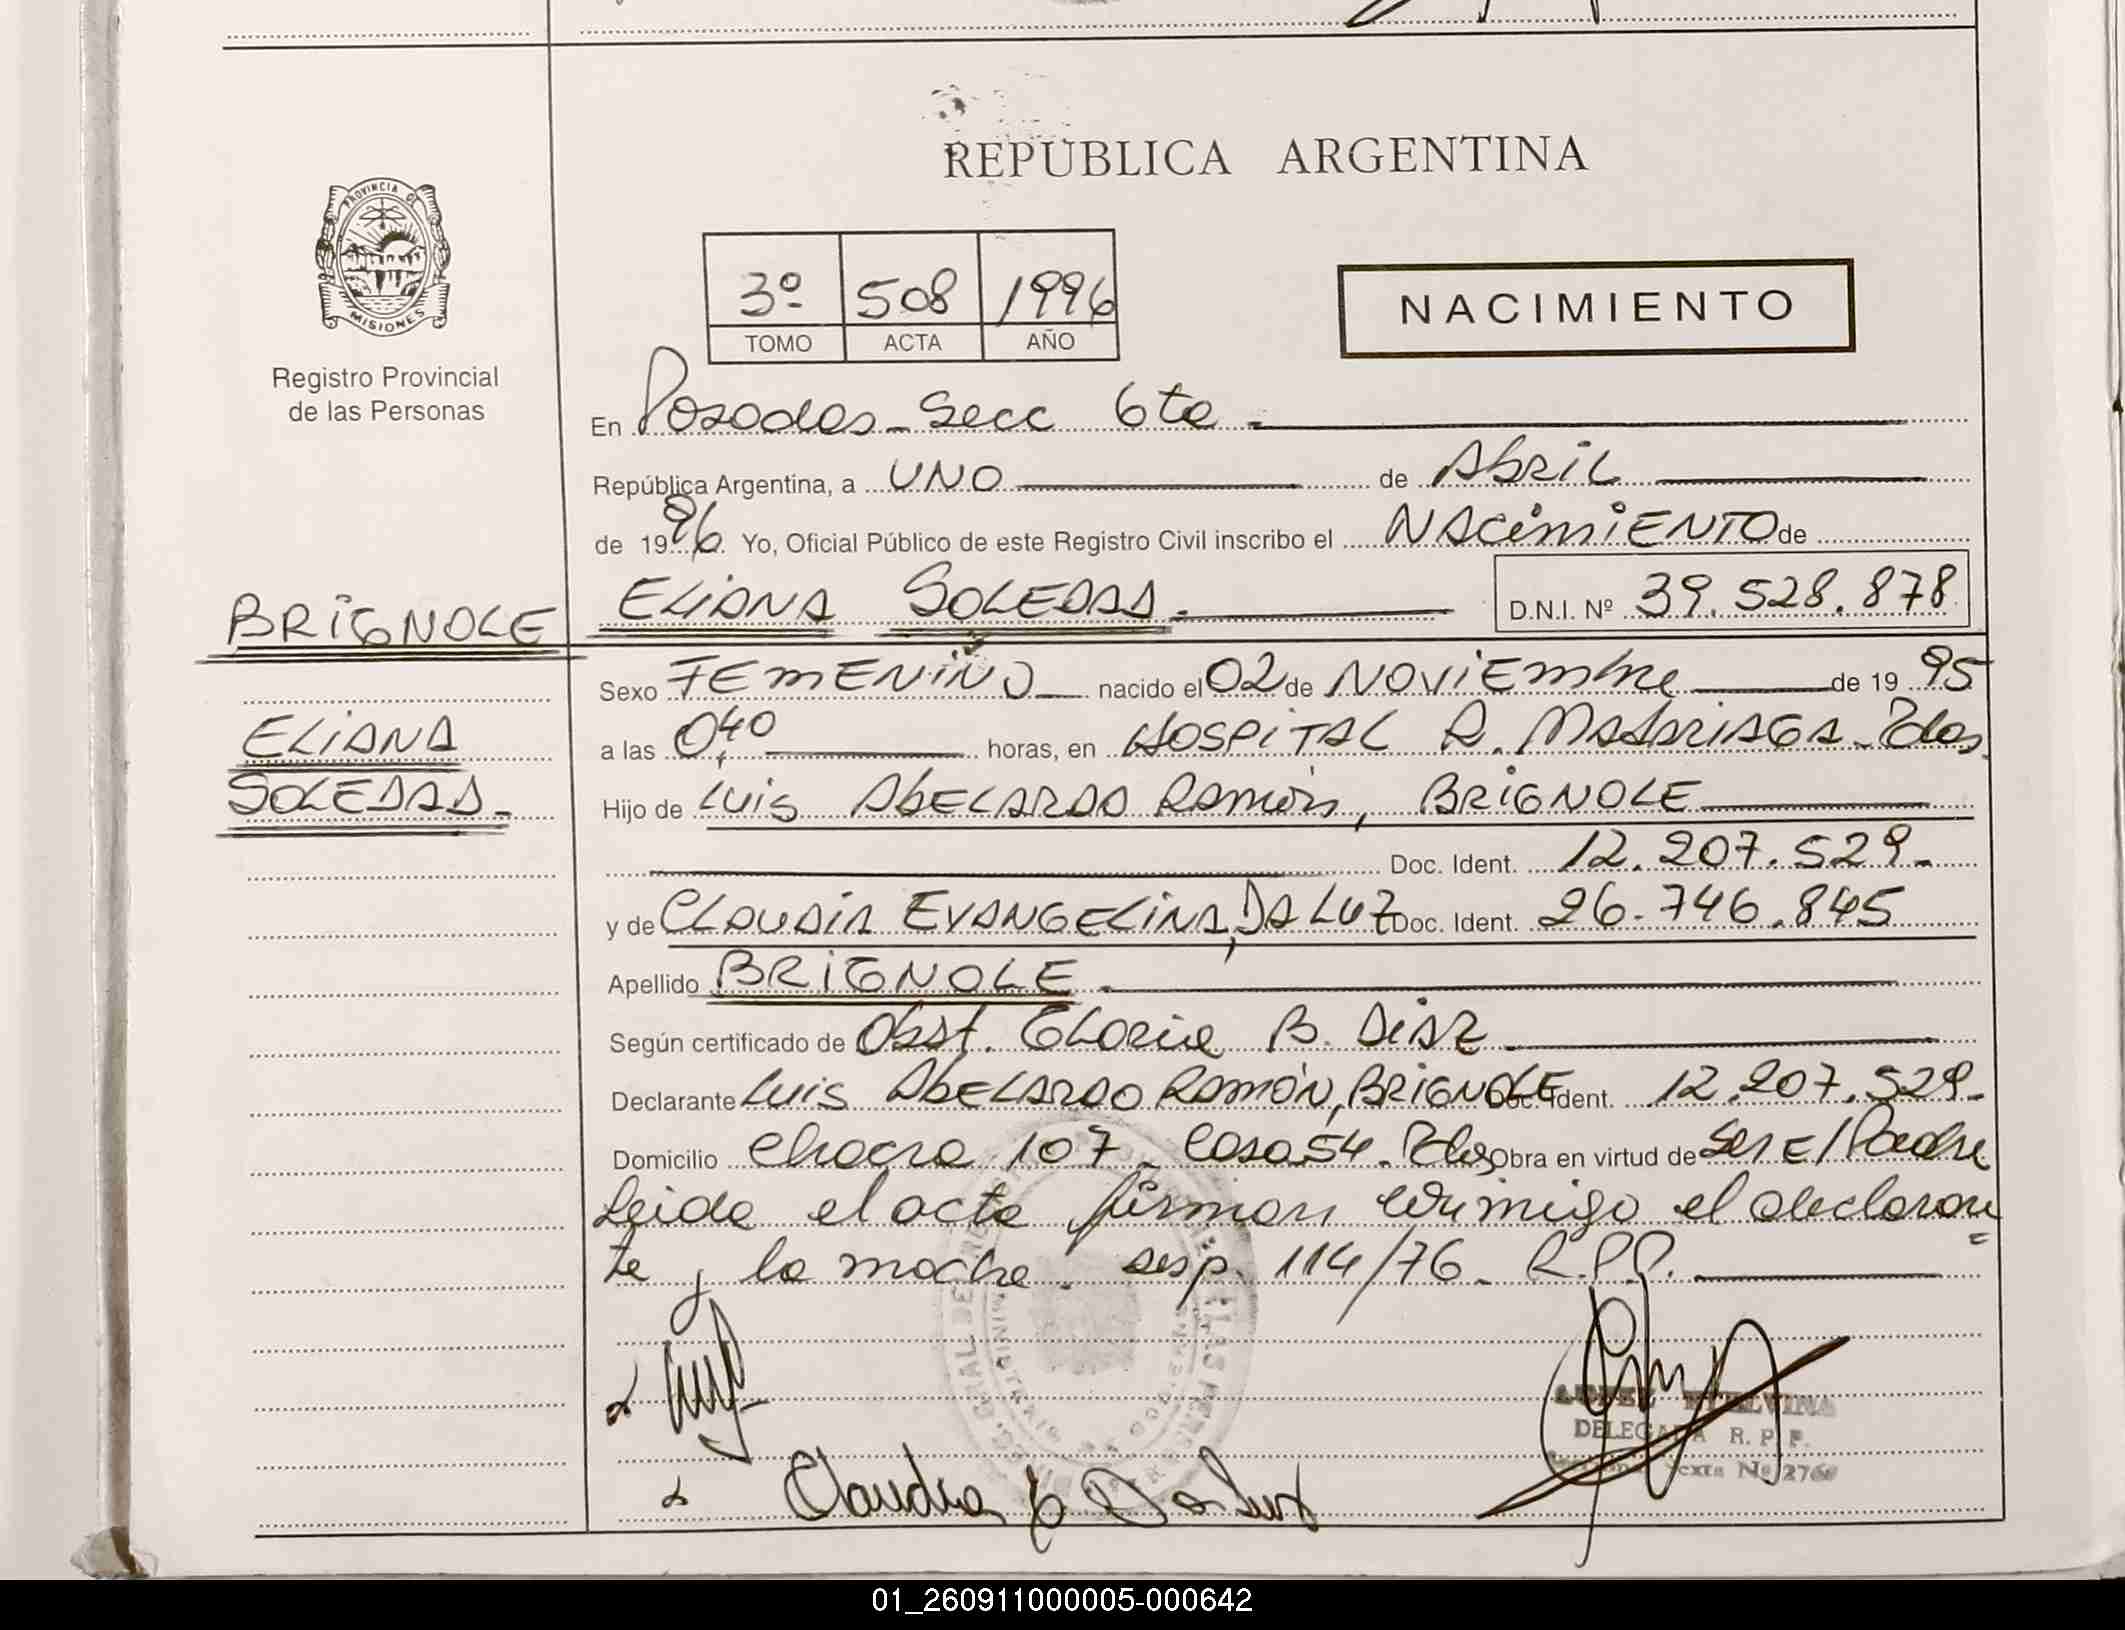 REPUBLICA ARGENTINA
PROVINCIA DE
MISIONES
Registro Provincial
de las Personas
3º 508 1996
TOMO ACTA AÑO
NACIMIENTO
En Posadas - Secc 6ta -
República Argentina, a UNO de Abril
de 1996 Yo, Oficial Público de este Registro Civil inscribo el NACimiENTO de
BRiGNOLE ELiANA SOLEDAD. D.N.I. Nº 39.528.878
Sexo FEmENiNO nacido el 02 de NOViEmbre de 1995
ELiANA
a las 0,40 horas, en HOSPiTAL R. MADARiAGA - Pdas.
SOLEDAD -
Hijo de Luis ABELARDO RAMÓN, BRiGNOLE
Doc. Ident. 12.207.529 -
y de CLAUDIA EVANGELINA, DA LUZ Doc. Ident. 26.746.845
Apellido BRiGNOLE -
Según certificado de Obst. Gloria B. DiAZ
Declarante Luis ABELARDO RAMÓN, BRiGNOLE Doc. Ident. 12.207.529 -
Domicilio Chacra 107 - Casa 54 - Pdas Obra en virtud de Ser El Padre
Leida el acta firman conmigo el declaran
te y la madre. disp. 114/76 - R.P.P.
Claudia E Da Luz
LOPEZ ETELVINA
DELEGADA R. P. P.
Sexta Nº 276
01_260911000005-000642